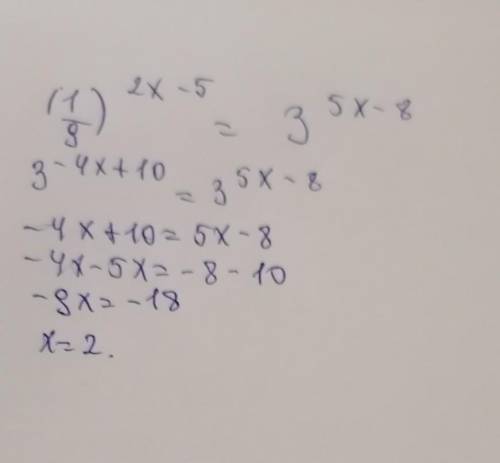 (1/9)^(2x-5) = 3^(5x-8)
3^(-4x+10) = 3^(5x-8)
-4x+10=5x-8
-4x-5x=-8-10
-9x=-18
x=2.